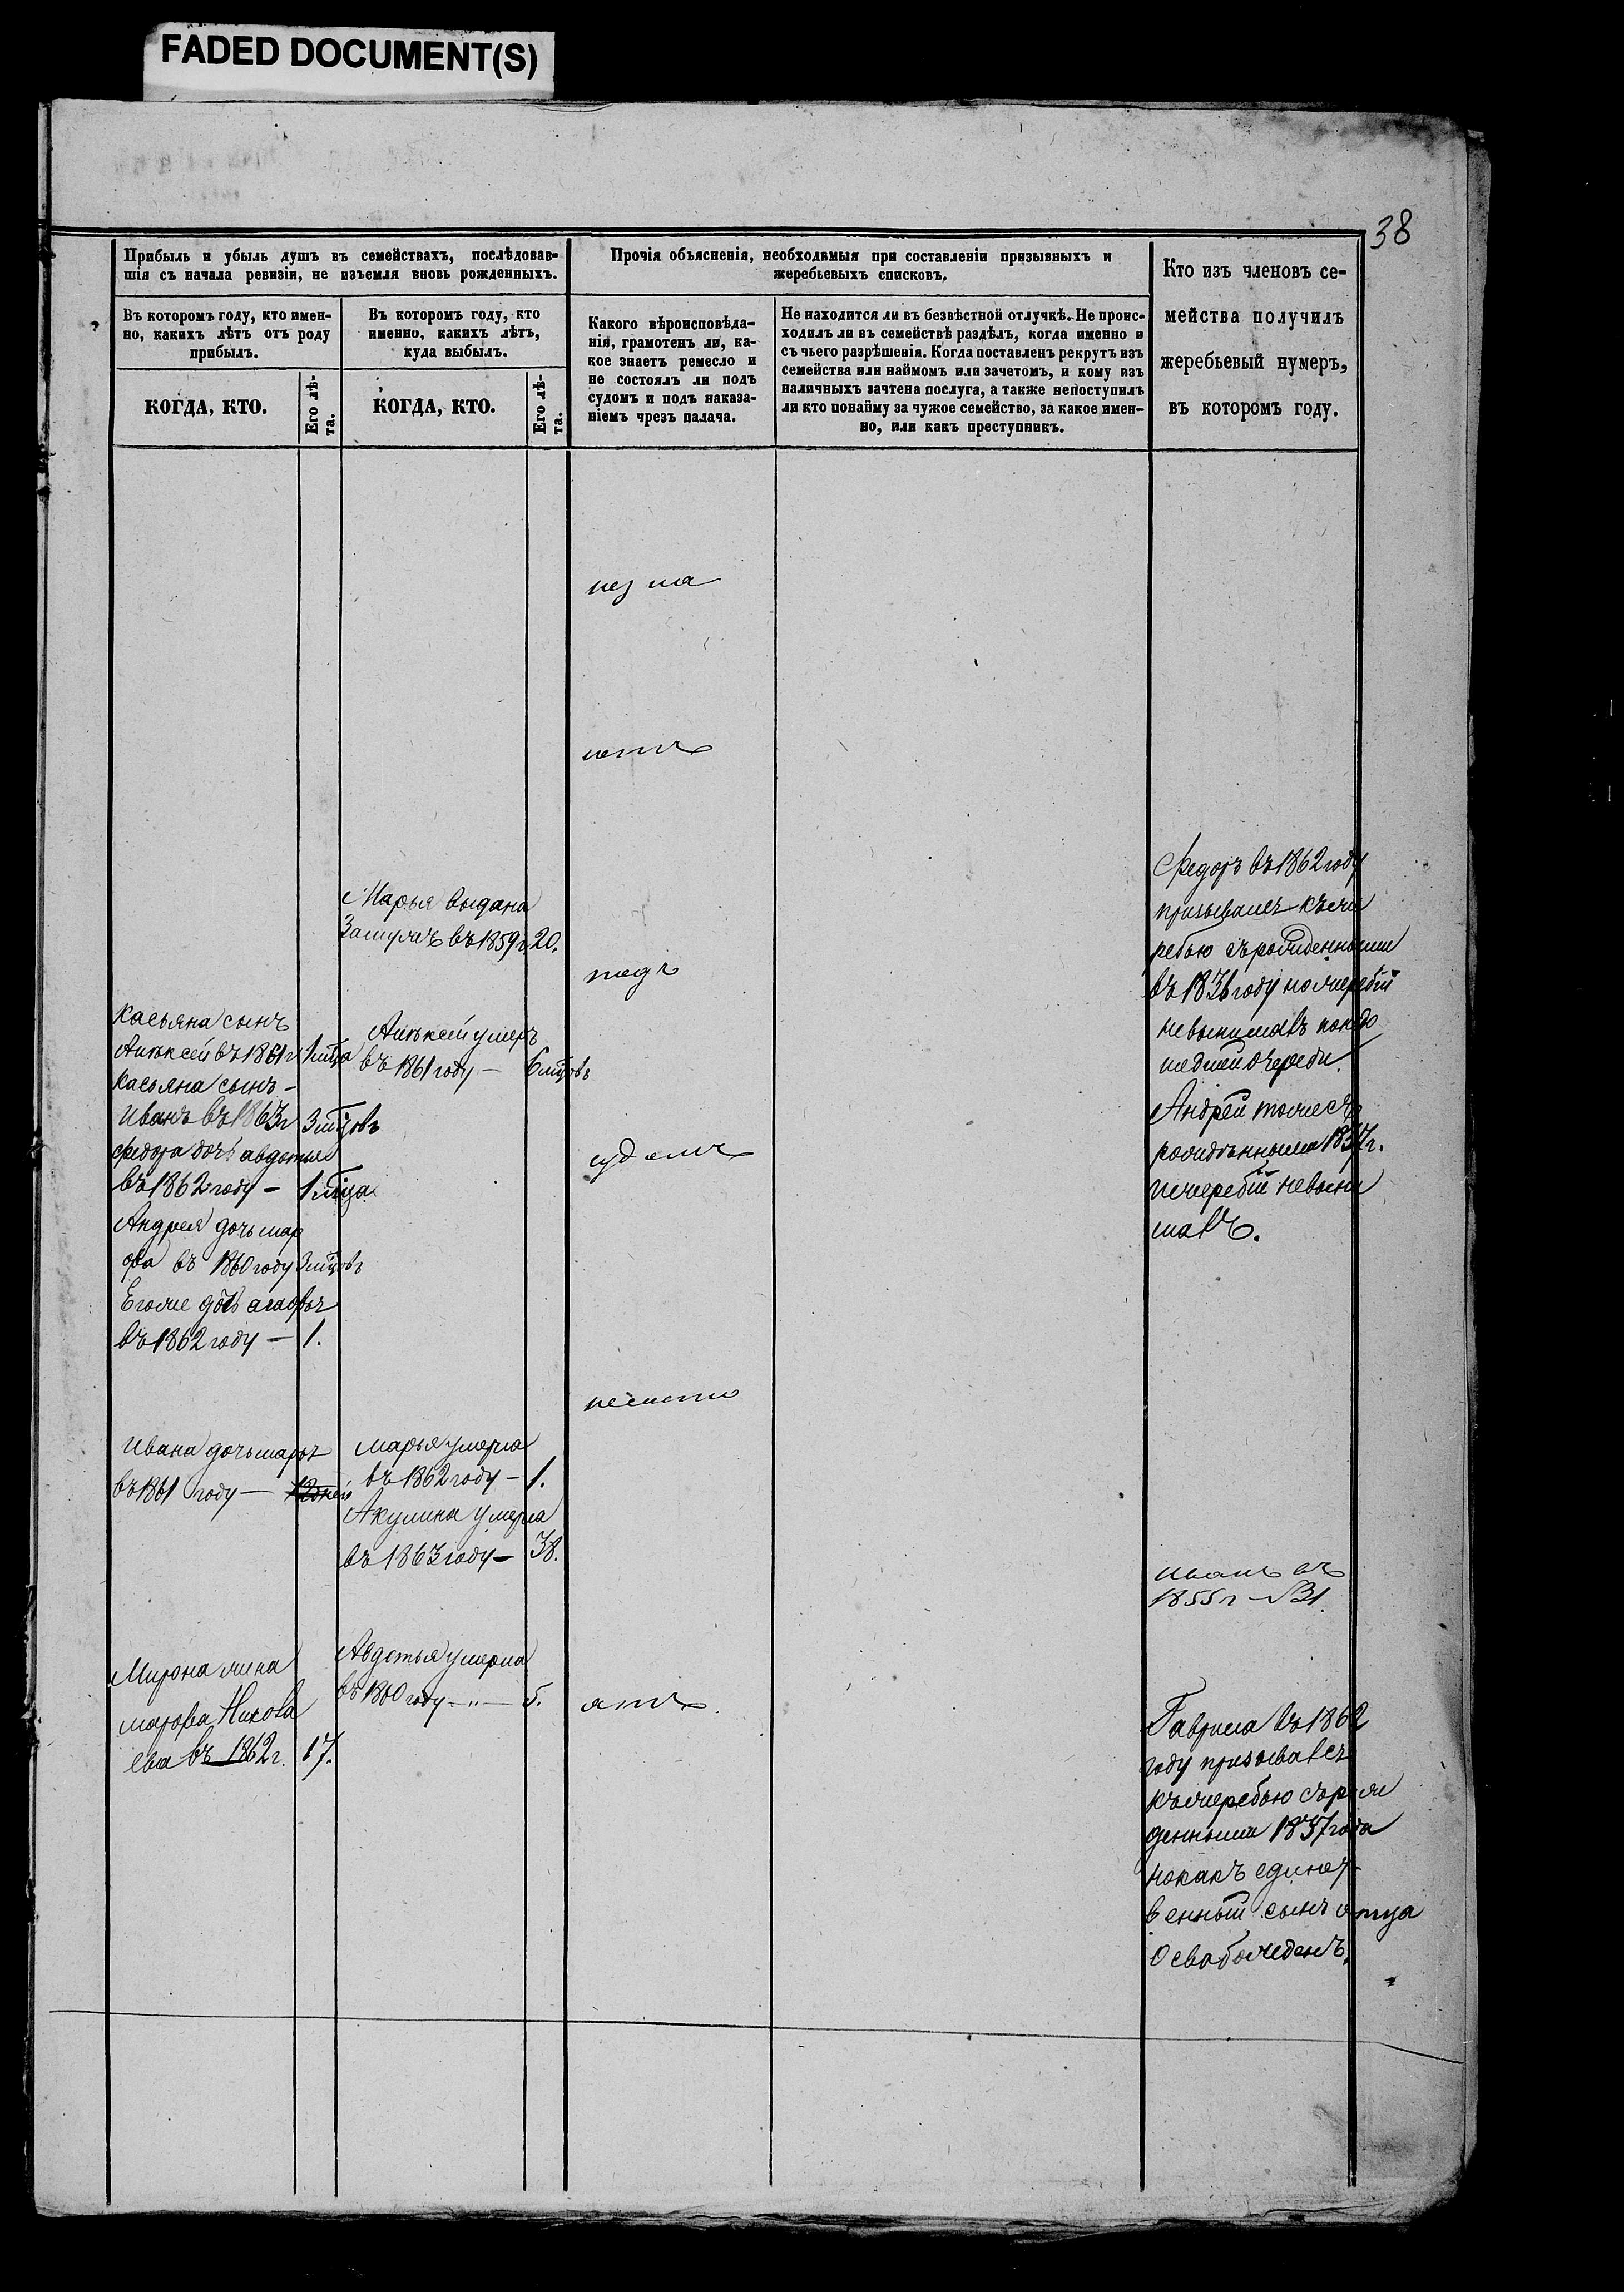 FADED DOCUMENT(S)
38
Прибыль и убыль душъ въ семействахъ, послѣдовав-
шія съ начала ревизіи, не изъемля вновь рожденныхъ.
Прочія объясненія, необходимыя при составленіи призывныхъ и
жеребьевыхъ списковъ.
Кто изъ членовъ се-
мейства получилъ
жеребьевый нумеръ,
въ которомъ году.
Въ которомъ году, кто имен-
но, какихъ лѣтъ отъ роду
прибылъ.
Въ которомъ году, кто
именно, какихъ лѣтъ,
куда выбылъ.
Какого вѣроисповѣда-
нія, грамотенъ ли, ка-
кое знаетъ ремесло и
не состоялъ ли подъ
судомъ и подъ наказа-
ніемъ чрезъ палача.
Не находится ли въ безвѣстной отлучкѣ. Не проис-
ходилъ ли въ семействѣ раздѣлъ, когда именно и
съ чьего разрѣшенія. Когда поставленъ рекрутъ изъ
семейства или наймомъ или зачетомъ, и кому изъ
наличныхъ зачтена послуга, а также непоступилъ
ли кто понайму за чужое семейство, за какое имен-
но, или какъ преступникъ.
КОГДА, КТО.
Его лѣ-
та.
КОГДА, КТО.
Его лѣ-
та.
Марья выдана
Замужъ въ 1859 г. 20.
подъ
Федоръ въ 1862 году
призывался къ же
ребью съ рожденными
въ 1836 году но жеребій
невынималъ
шедшей очереди.
Андрей тоже съ
рожденными 1837 г.
жеребій невыни
малъ.
Касьяна сынъ
Алексей въ 1861 г 1 мѣца
Касьяна сынъ -
Иванъ въ 1863 г 3 мѣцовъ
Федора дочь авдотья
въ 1862 году - 1 мѣца
Андрея дочь мар
фа въ 1860 году 3 мѣцовъ
Егоже дочь агафья
въ 1862 году - 1.
Алексей умеръ
въ 1861 году - 6 мѣцовъ
судомъ
несосто
Ивана дочь марья
въ 1861 году - 12 дней
марья умерла
въ 1862 году - 1.
Акулина умерла
въ 1863 году - 38.
Иванъ въ
1855 г - № 31.
Мирона жена
марфа Никола
ева въ 1862 г. 17.
Авдотья умерла
въ 1860 году - " - 5.
ятъ
Гаврила въ 1862
году призывался
къ жеребью съ рож
денными 1837 года
но какъ единст
венный сынъ отца
Освобожденъ.